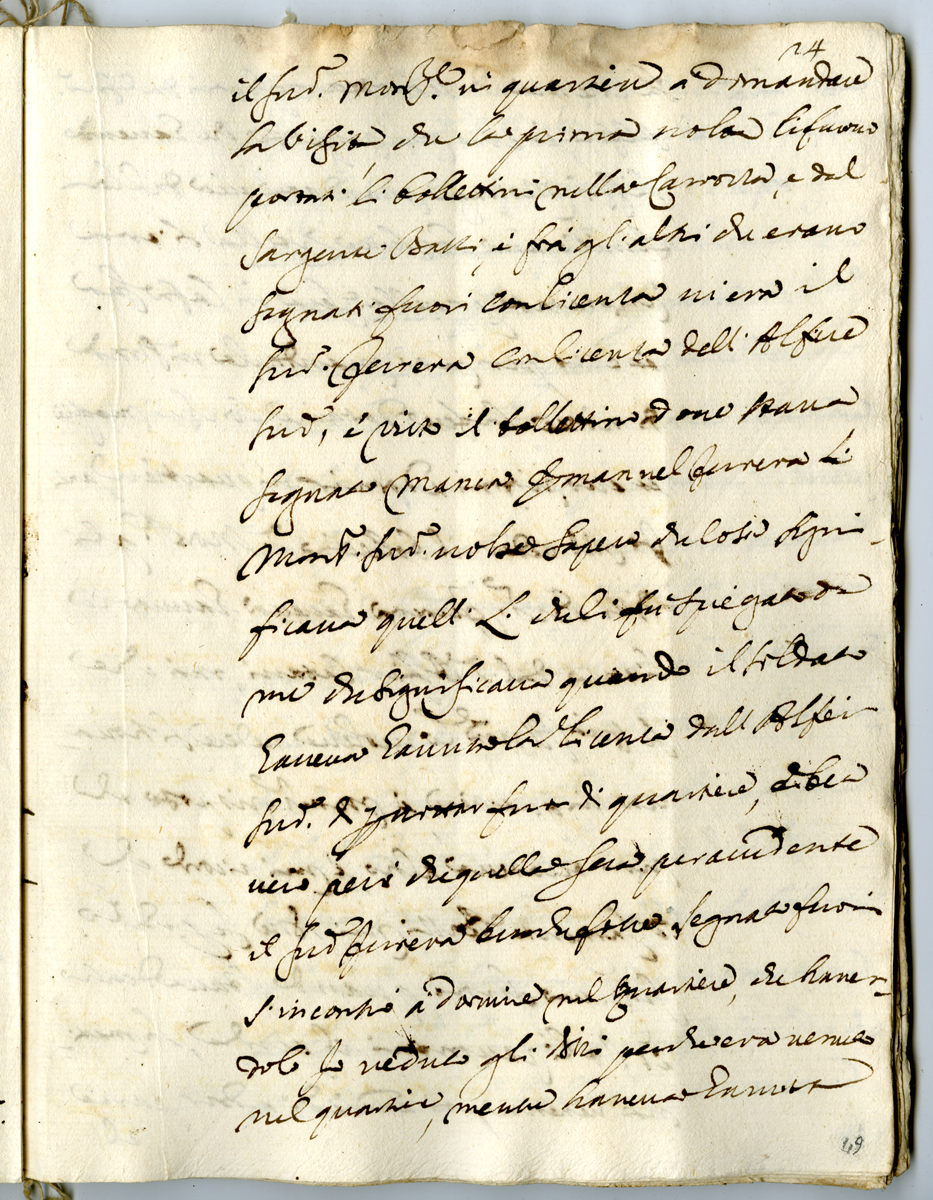 24
il sud.º Mons.r in quartiere a domandare
la visita, che la prima volta li furno
portati li bollettini nella Carrozza, e dal
Sargente Batti, e frà gli altri che erano
segnati fuori con licenza vi era il
sud.º Ferrera con licenza dell'Alfiere
sud.º, e visto il bollettino dove stava
segnato Manca Emanuel Ferrera L:
Mons.r sud.º volse sapere che cosa signi-
ficava quell: L. che li fu spiegato da
me che significava quando il soldato
haveva havuto la licenza dall'Alfier
sud.º di star fuora di quartiere, è ben
vero però che quella sera per accidente
il sud.º Ferrera benche fosse segnato fuori
s'incontrò à dormire nel quartiere, che haven-
doli io veduto gli dissi perche era venuto
nel quartiere, mentre haveva havuta
49